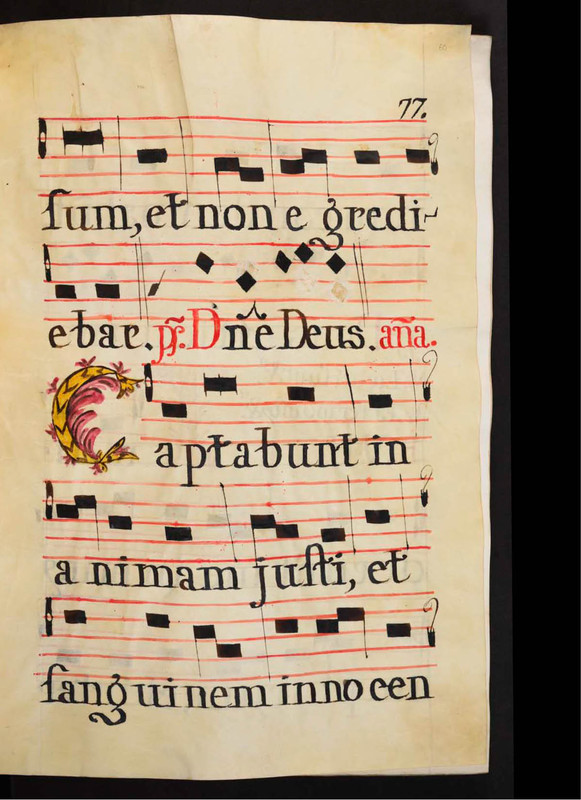 77.
sum, et non e gredi-
ebar. ps. Dñe Deus. aña.
Captabunt in
a nimam justi, et
sanguinem innocen